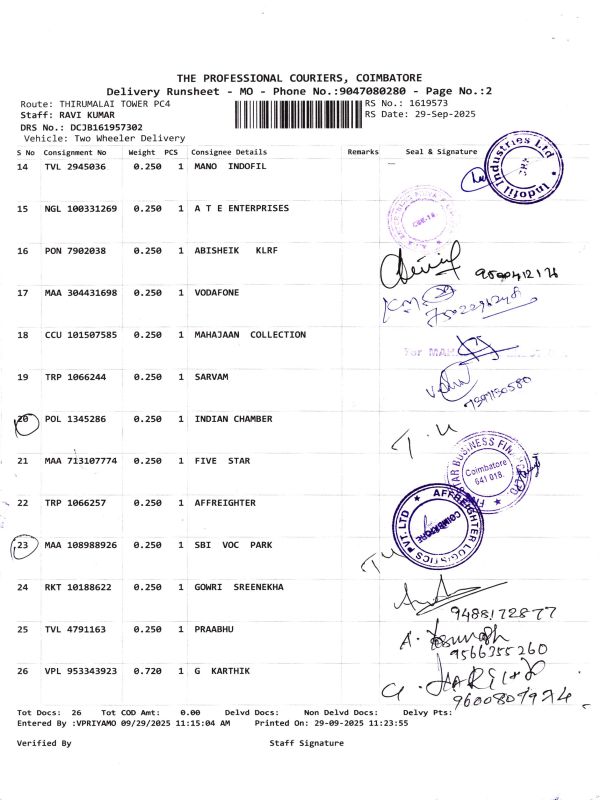 THE PROFESSIONAL COURIERS, COIMBATORE
Delivery Runsheet - MO - Phone No.:9047080280 - Page No.:2
Route: THIRUMALAI TOWER PC4 RS No.: 1619573
Staff: RAVI KUMAR RS Date: 29-Sep-2025
DRS No.: DCJB161957302
Vehicle: Two Wheeler Delivery
S No Consignment No Weight PCS Consignee Details Remarks Seal & Signature
14 TVL 2945036 0.250 1 MANO INDOFIL
Indofil Industries Ltd
15 NGL 100331269 0.250 1 A T E ENTERPRISES
16 PON 7902038 0.250 1 ABISHEIK KLRF
17 MAA 304431698 0.250 1 VODAFONE
18 CCU 101507585 0.250 1 MAHAJAAN COLLECTION
For MAHA
19 TRP 1066244 0.250 1 SARVAM
20 POL 1345286 0.250 1 INDIAN CHAMBER
T. U
21 MAA 713107774 0.250 1 FIVE STAR
STAR BUSINESS FINANCE
Coimbatore
641 018.
22 TRP 1066257 0.250 1 AFFREIGHTER
AFFREIGHTER LOGISTICS PVT. LTD
COIMBATORE
23 MAA 108988926 0.250 1 SBI VOC PARK
TU
24 RKT 10188622 0.250 1 GOWRI SREENEKHA
9488172877
25 TVL 4791163 0.250 1 PRAABHU
9566355260
26 VPL 953343923 0.720 1 G KARTHIK
Tot Docs: 26 Tot COD Amt: 0.00 Delvd Docs: Non Delvd Docs: Delvy Pts:
Entered By :VPRIYAMO 09/29/2025 11:15:04 AM Printed On: 29-09-2025 11:23:55
Verified By Staff Signature